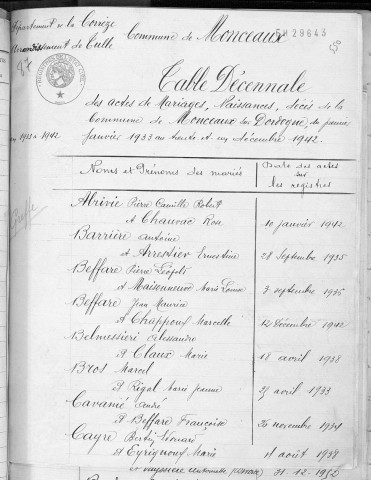 Département de la Corrèze
Commune de Monceaux
Arrondissement de Tulle
Table Décennale
des actes de Mariages, Naissances, décès de la
Commune de Monceaux sur Dordogne, du premier
janvier 1933 au trente et un décembre 1942.
Noms et Prénoms des mariés
Date des actes
sur
les registres
Abrivie Pierre Camille Robert
et Chauvac Rose 10 janvier 1942
Barrière Antoine
et Arrestier Ernestine 28 Septembre 1935
Beffare Pierre Léopold
et Maisonneuve Marie Louise 3 septembre 1935
Beffare Jean Maurice
et Chappoux Marcelle 12 décembre 1942
Belmessieri Alessandro
et Claux Marie 18 avril 1938
Bros Marcel
et Rigal Marie Jeanne avril 1933
Cavanié André
et Beffare Françoise 20 novembre 1934
Cayre Léonard
et Eyrignoux Marie août 1938
31-12-1952